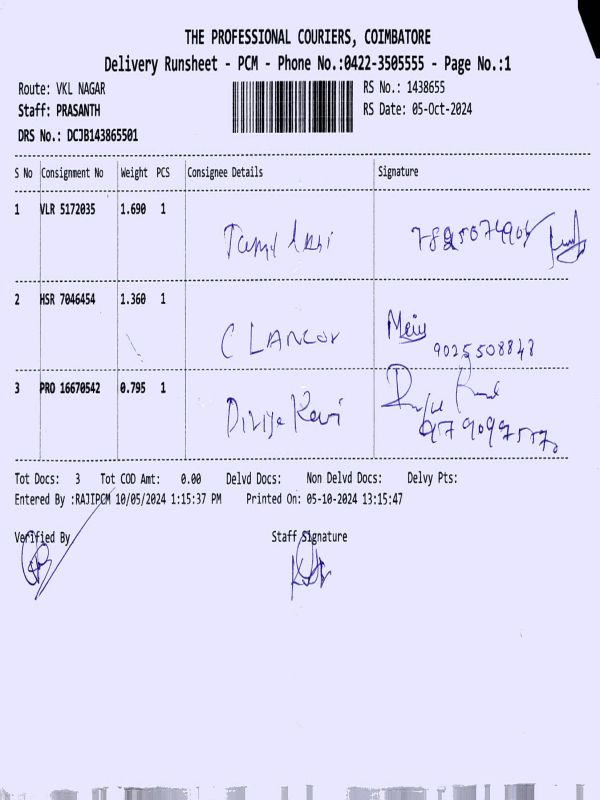 THE PROFESSIONAL COURIERS, COIMBATORE
Delivery Runsheet - PCM - Phone No.:0422-3505555 - Page No.:1
Route: VKL NAGAR RS No.: 1438655
Staff: PRASANTH RS Date: 05-Oct-2024
DRS No.: DCJB143865501
S No Consignment No Weight PCS Consignee Details Signature
1 VLR 5172035 1.690 1
2 HSR 7046454 1.360 1
C LANCOV
9025508848
3 PRO 16670542 0.795 1
Tot Docs: 3 Tot COD Amt: 0.00 Delvd Docs: Non Delvd Docs: Delvy Pts:
Entered By :RAJIPCM 10/05/2024 1:15:37 PM Printed On: 05-10-2024 13:15:47
Verified By Staff Signature